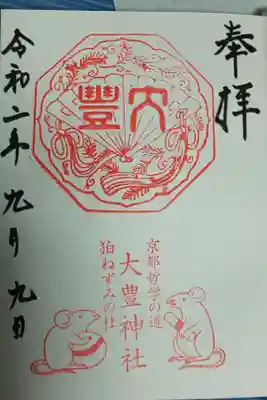 奉拝
大豊
京都哲学の道
大豊神社
狛ねずみの社
令和二年九月九日